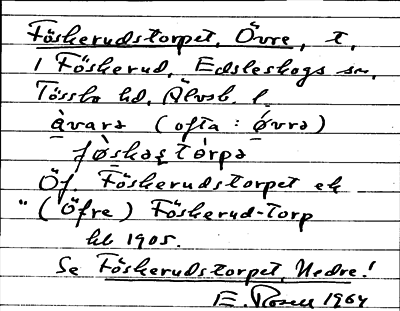 Föskerudstorpet, Övre, t.
i Föskerud, Edsleskogs sn,
Tössbo hd, Älvsb. l.
å̀varə (ofta: ǿvrə)
fø̀skəstòrpə
Öf. Föskerudstorpet ek
" (Öfre) Föskerud-Torp
hb 1905.
Se Föskerudstorpet, Nedre!
E. Rosell 1964